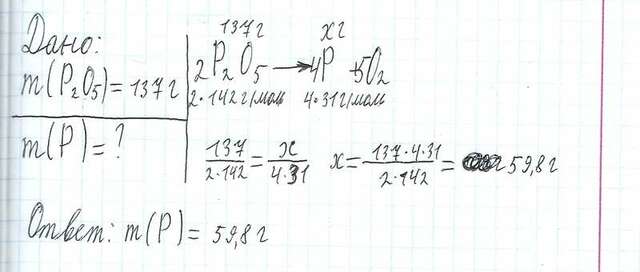 Дано:
m(P₂O₅) = 137 г
m(P) = ?
137 г х г
2P₂O₅ → 4P 5O₂
2·142 г/моль 4·31 г/моль
137/2·142 = х/4·31 х = 137·4·31/2·142 = 59,8 г
Ответ: m(P) = 59,8 г